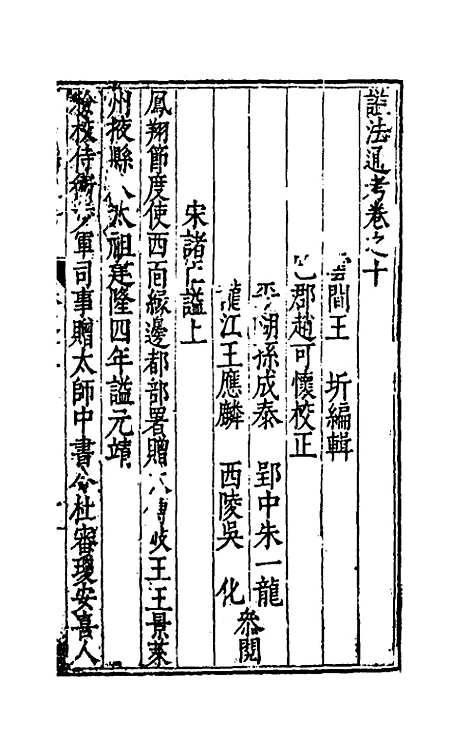 謚法通考卷之十
雲間王 圻編輯
巴郡趙可懷校正
平湖孫成泰 郢中朱一龍
龍江王應麟 西陵吳 化 叅閱
宋諸臣謚上
鳳翔節度使西面緣邊都部署贈太傅岐王王景萊
州掖縣人太祖建隆四年謚元靖
檢校侍衛 軍司事贈太師中書令杜審瓊安喜人